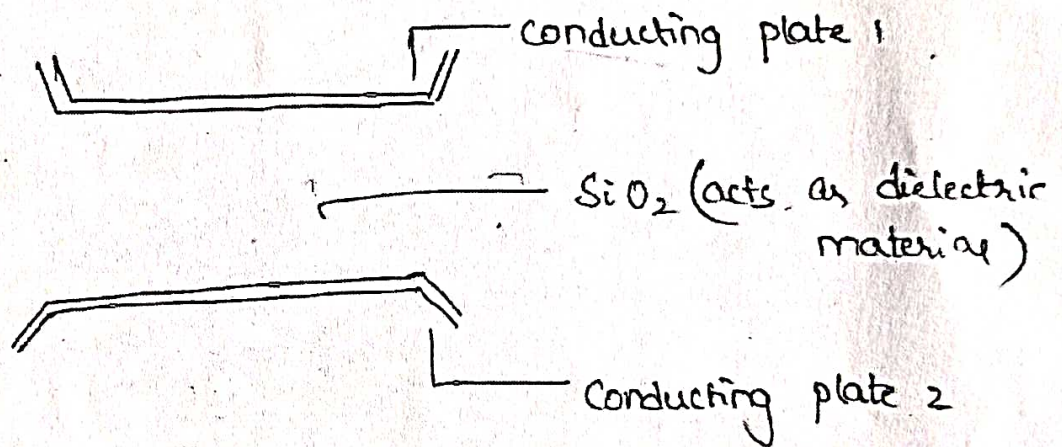 conducting plate 1
SiO2 (acts as dielectric
material)
Conducting plate 2